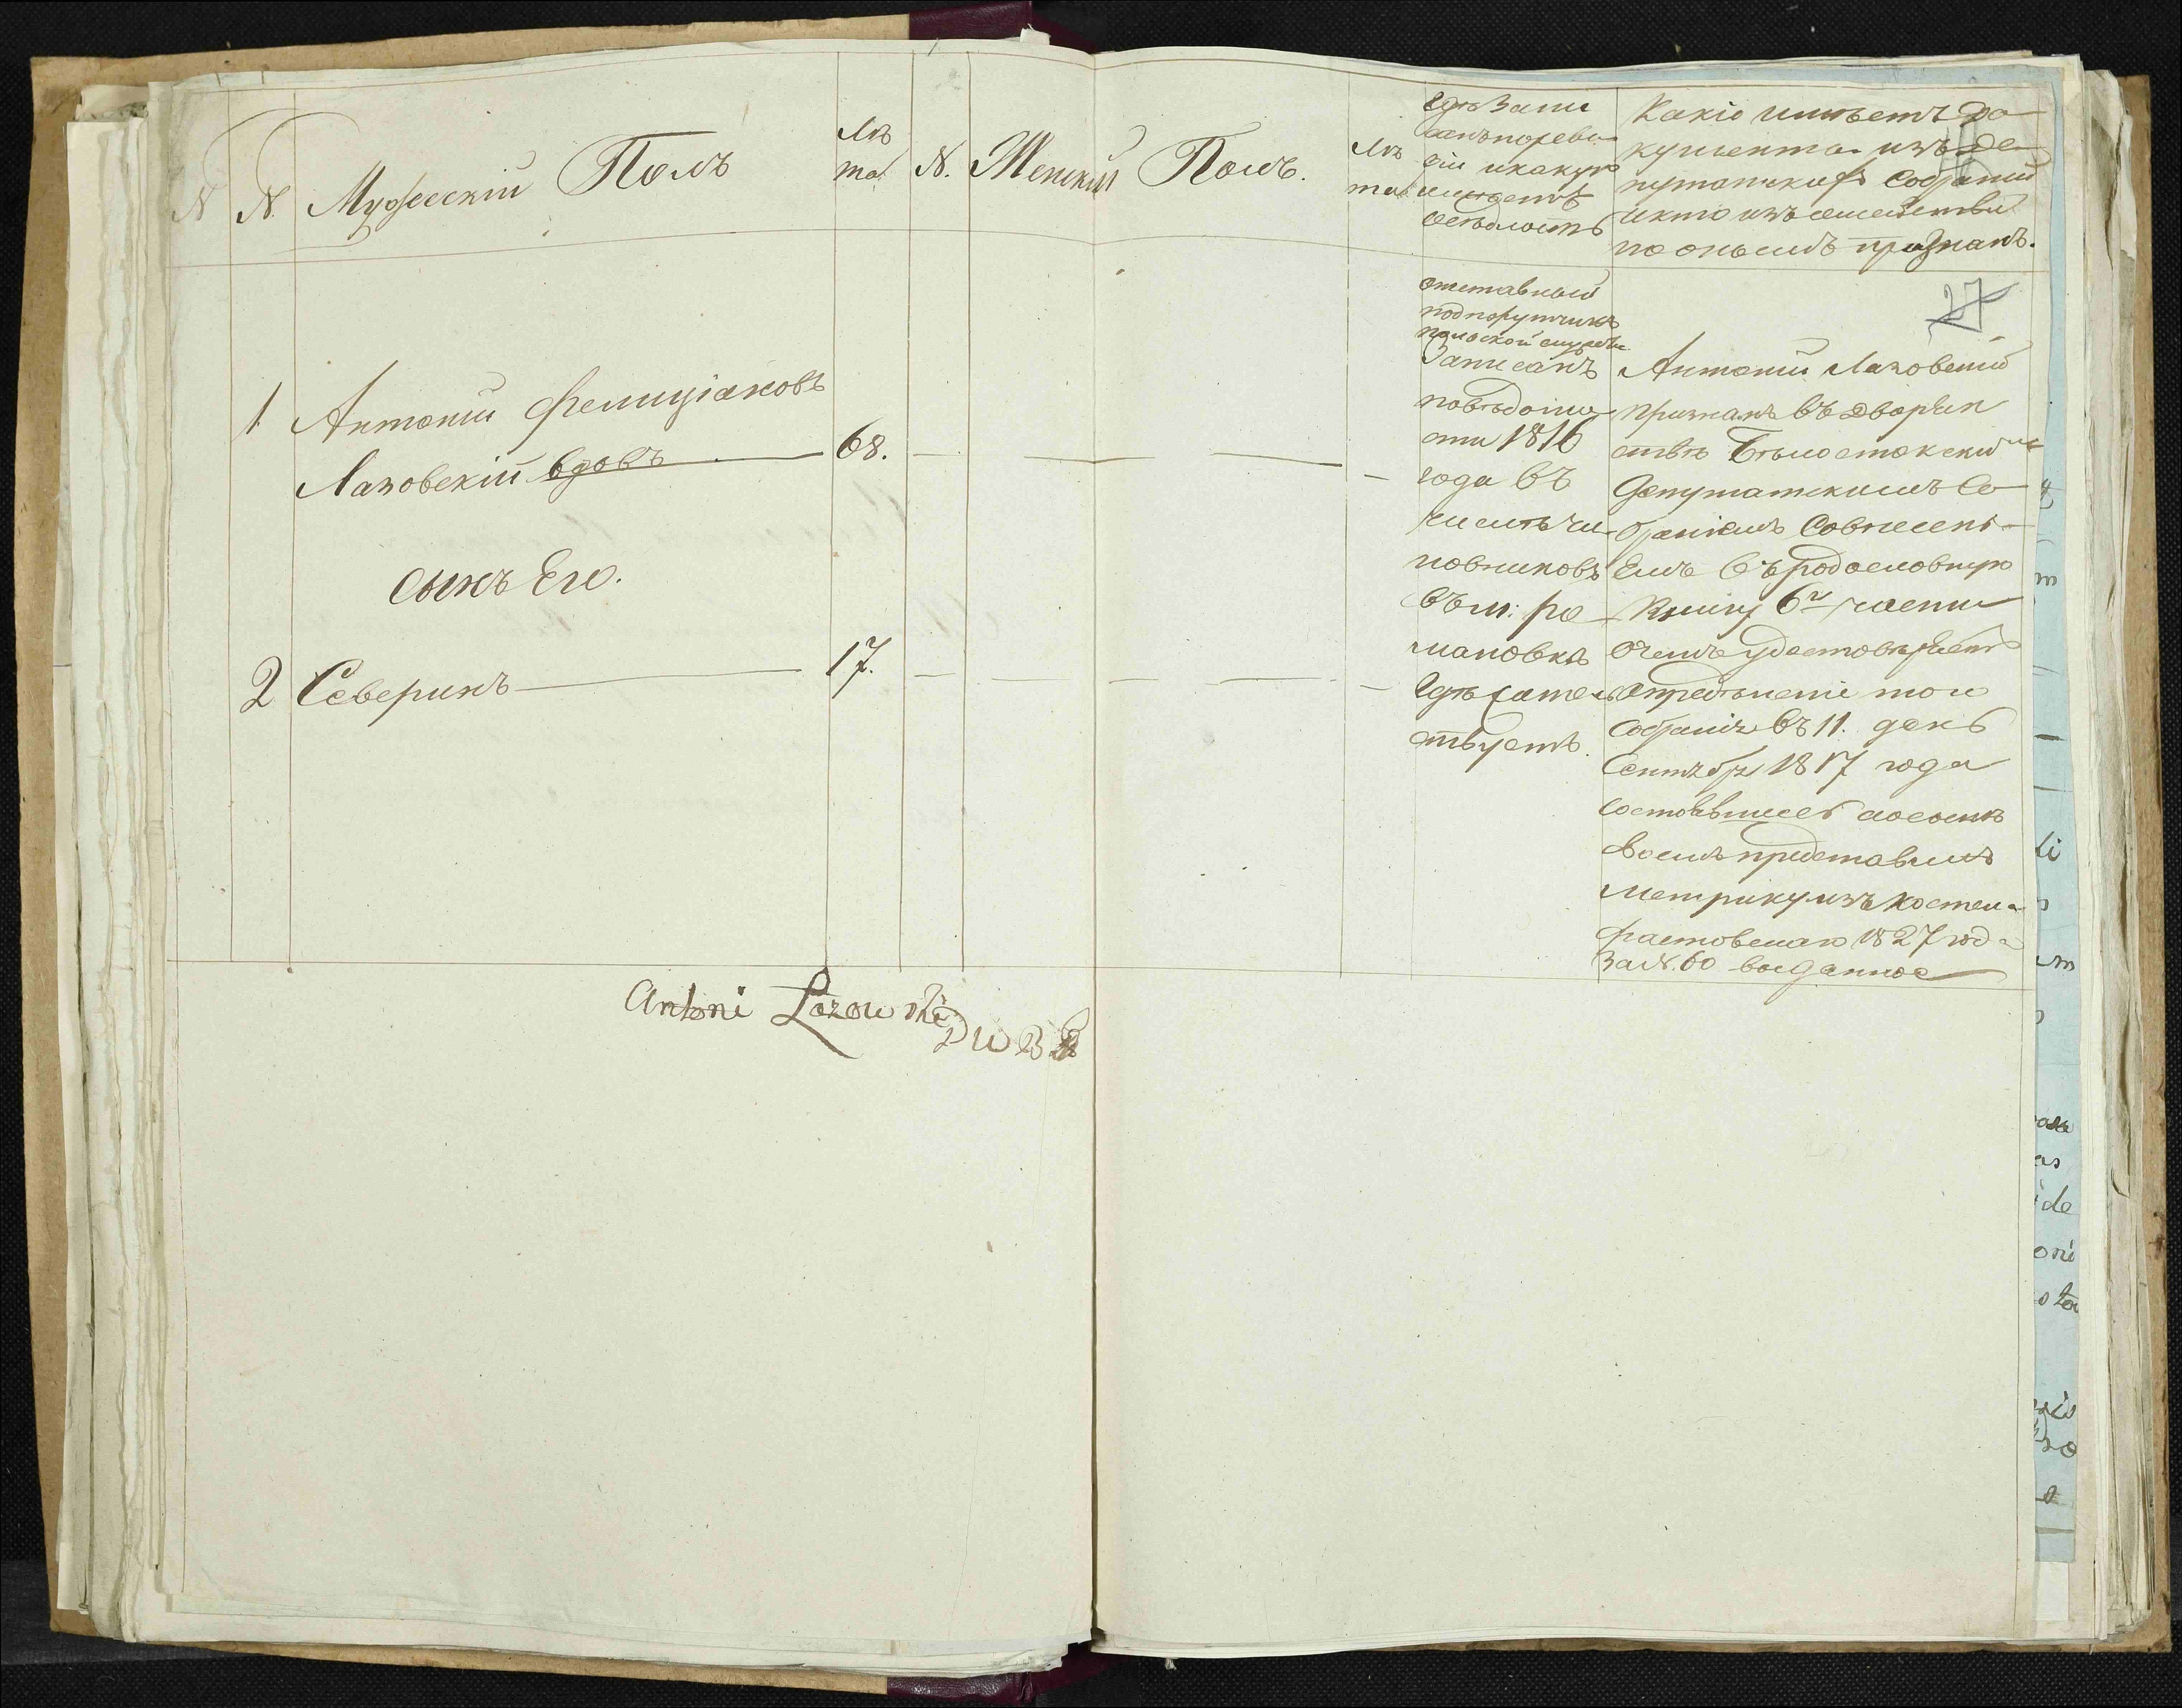 N
N. Мужескій Полъ
Лѣ
та
N. Женскій Полъ.
Лѣ
та
Гдѣ запи
санъ по реви
зіи и какую
имѣетъ
осѣдлость
Какіе имѣетъ до
кумента изъ де
путатскихъ собраній
и кто изъ семейства
по онымъ признанъ.
27
1 Антоній Фелиціановъ
Лазовскій вдовъ 68.
сынъ Его.
2 Северинъ 17.
отставный
подпорутчикъ
польской службы
Записанъ
по вѣдомо
сти 1816
года въ
числѣ чи
новниковъ
въ м: ро
мановкѣ
Гдѣ
ствуетъ.
Антоній Лазовскій
признанъ въ дворян
ствѣ Бѣлостокскимъ
Депутатскимъ Со
браніемъ Совнесені
Емъ въ родословную
книгу 6й части
о чемъ удостовѣряетъ
опредѣленіе того
собранія въ 11. день
Сентября 1817 года
состоявшиеся о сынѣ
своемъ представилъ
метрику изъ костела
1827 года
за N. 60 выданное
Antoni Lozowski
ti
m
as
de